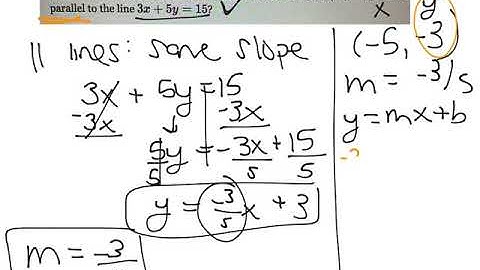 parallel to the line 3x + 5y = 15?
|| lines: same slope
3x + 5y = 15
-3x -3x
5y = -3x + 15
5 5 5
y = -3/5 x + 3
m = -3
x y
(-5, -3)
m = -3/5
y = mx + b